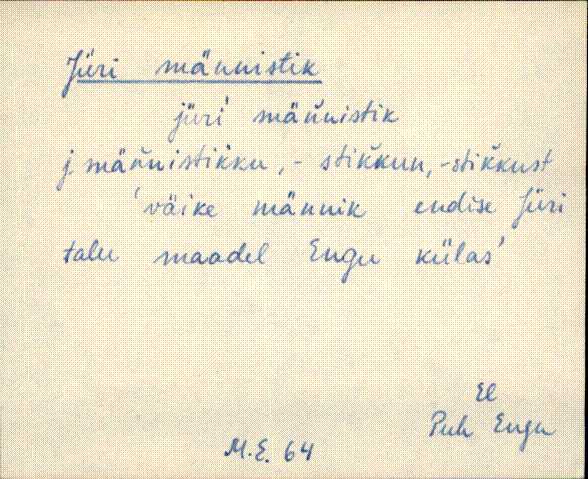 Jüri männistik
jüri männistik
j männistikku, -stikkun, -stikkust
'väike männik endise Jüri
talu maadel Engu külas'
El
Puh Engu
M.E. 64